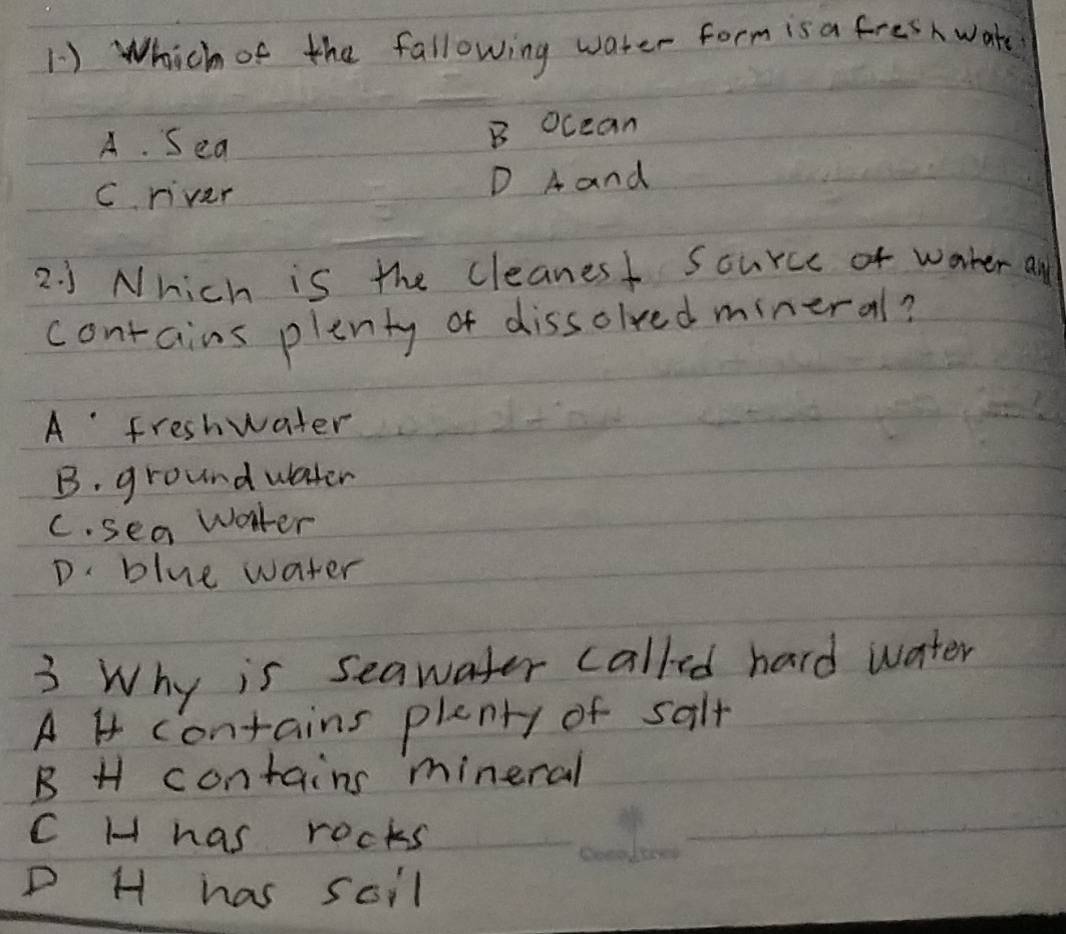 1.) Which of the fallowing water form is a fresh wate
A. Sea B Ocean
C. river D A and
2.) Nhich is the cleanest source of water an
contains plenty of dissolved mineral?
A. freshwater
B. groundwater
C. sea water
D. blue water
3 Why is seawater called hard water
A It contains plenty of salt
B It contains mineral
C It has rocks
D It has soil